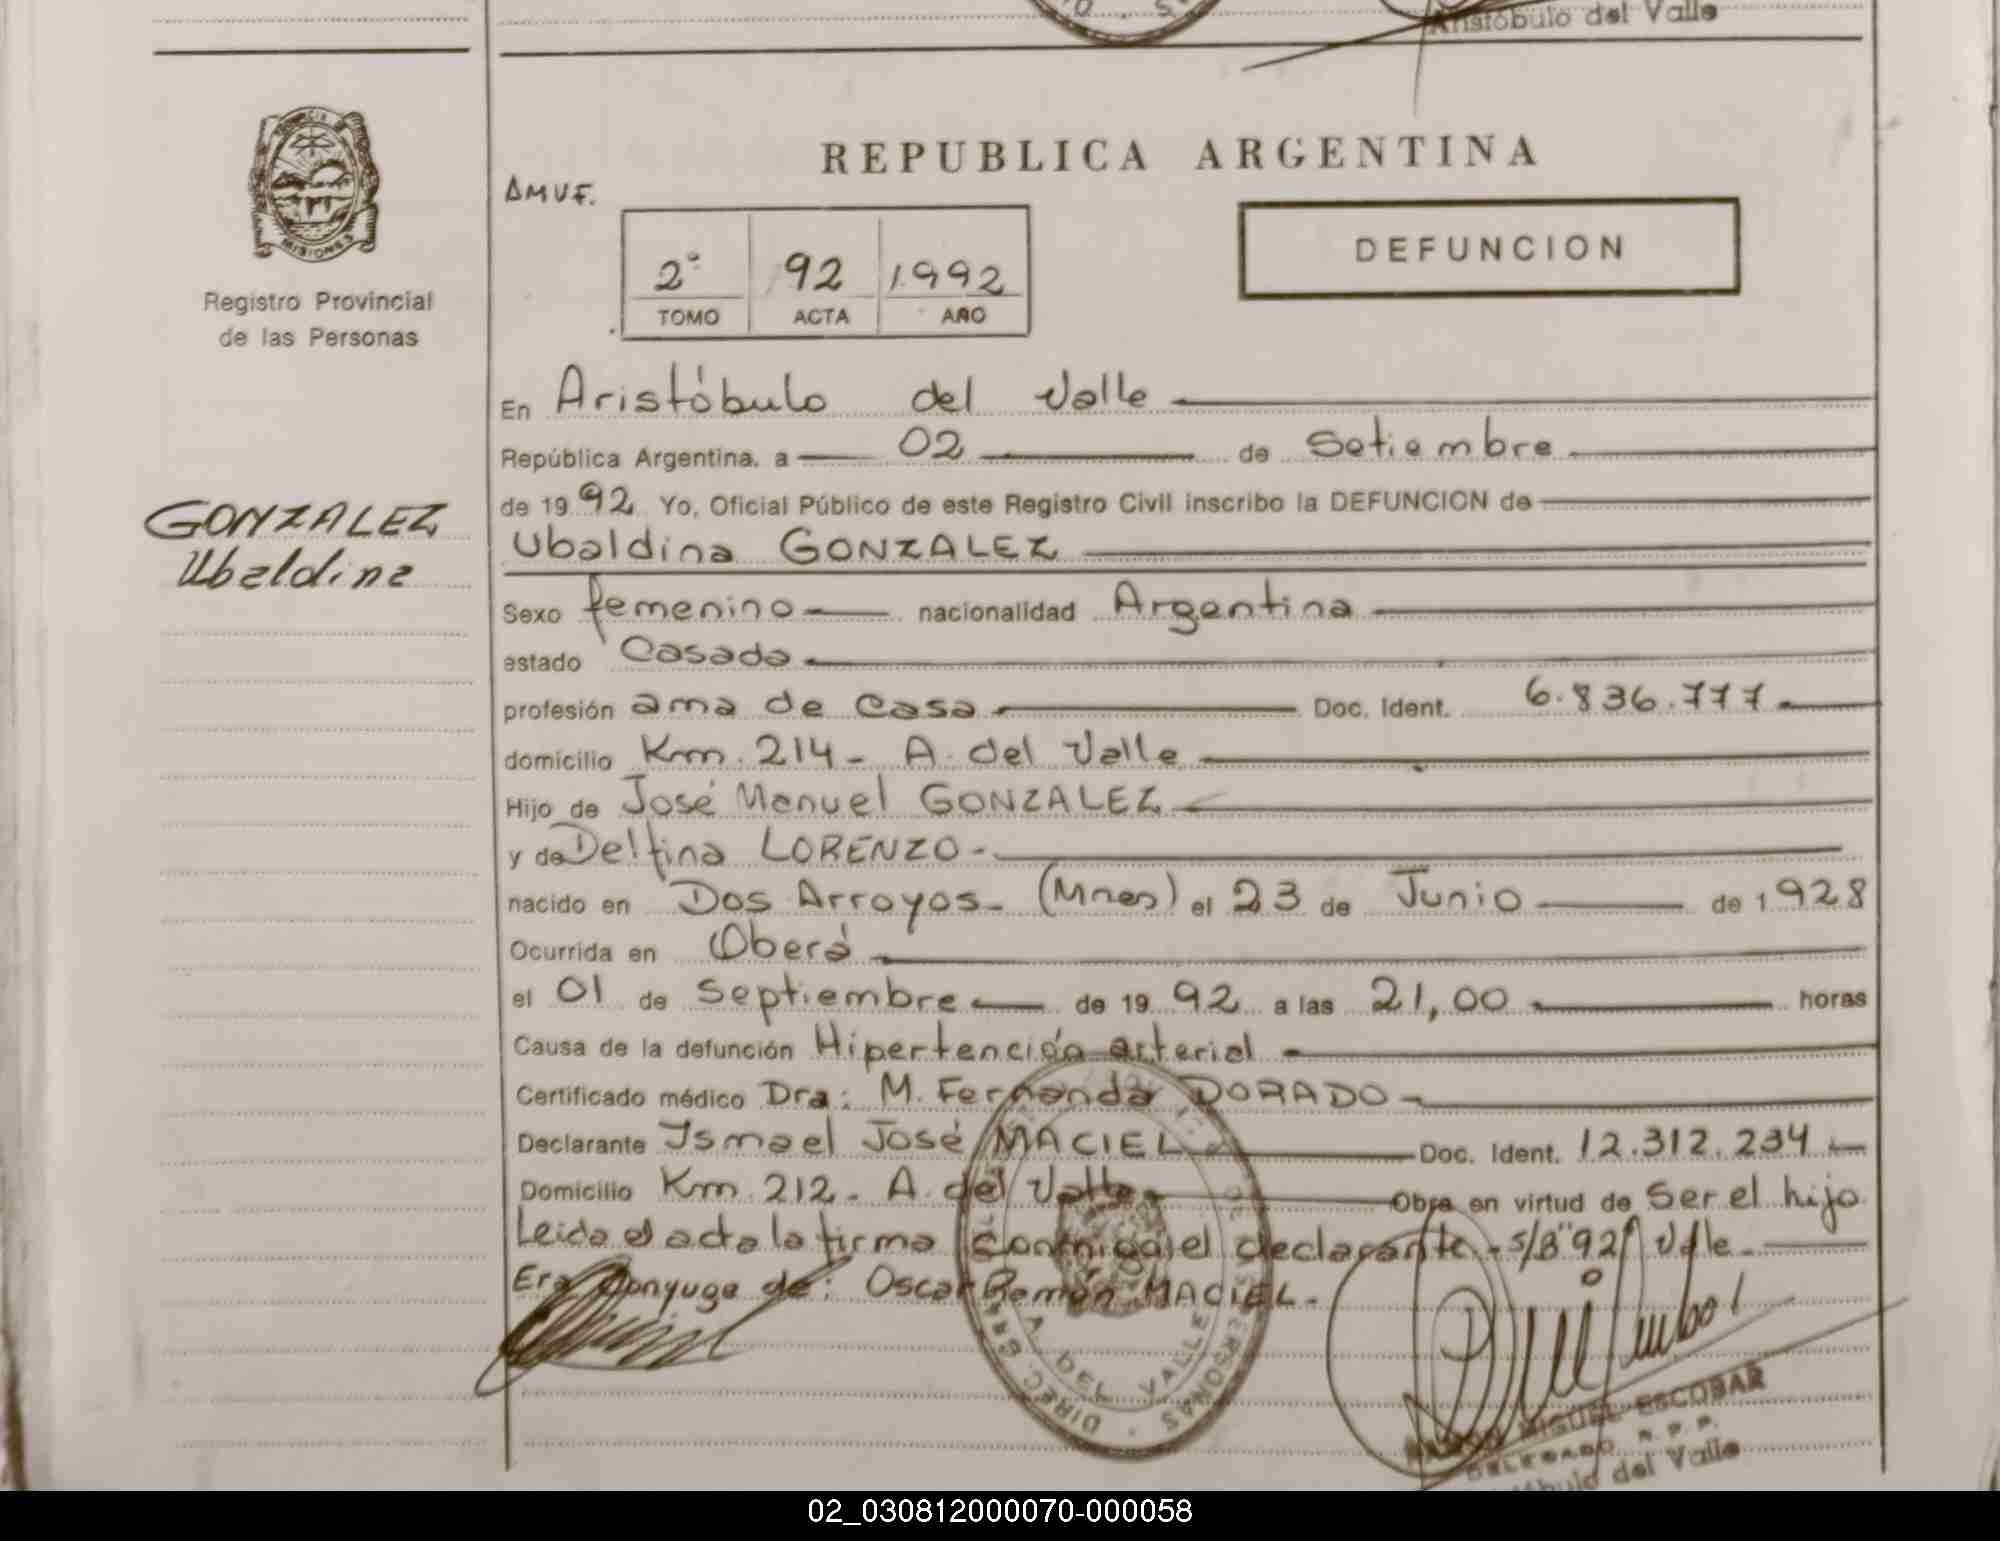 Aristóbulo del Valle
PROVINCIA DE
MISIONES
Registro Provincial
de las Personas
GONZALEZ
Ubaldina
REPUBLICA ARGENTINA
AMVF.
DEFUNCION
2° 92 1992
TOMO ACTA AÑO
En Aristóbulo del Valle
República Argentina, a 02 de Setiembre
de 1992 Yo, Oficial Público de este Registro Civil inscribo la DEFUNCION de
Ubaldina GONZALEZ
Sexo femenino nacionalidad Argentina
estado Casada
profesión ama de Casa Doc. Ident. 6.836.777
domicilio Km. 214 - A. del Valle
Hijo de José Manuel GONZALEZ
y de Delfina LORENZO -
nacido en Dos Arroyos - (Mnes) el 23 de Junio de 1928
Ocurrida en Oberá
el 01 de Septiembre de 1992 a las 21,00 horas
Causa de la defunción Hipertención arterial -
Certificado médico Dra: M. Fernanda DORADO -
Declarante Ismael José MACIEL Doc. Ident. 12.312.234
Domicilio Km. 212 - A. del Valle - Obra en virtud de Ser el hijo
Leida el acta la firma conmigo el declarante - s/B "92" Vale
Era Conyuge de: Oscar Ramón MACIEL.
A. DEL VALLE
MIGUEL ESCOBAR
DELEGADO R. P. P.
del Valle
02_030812000070-000058